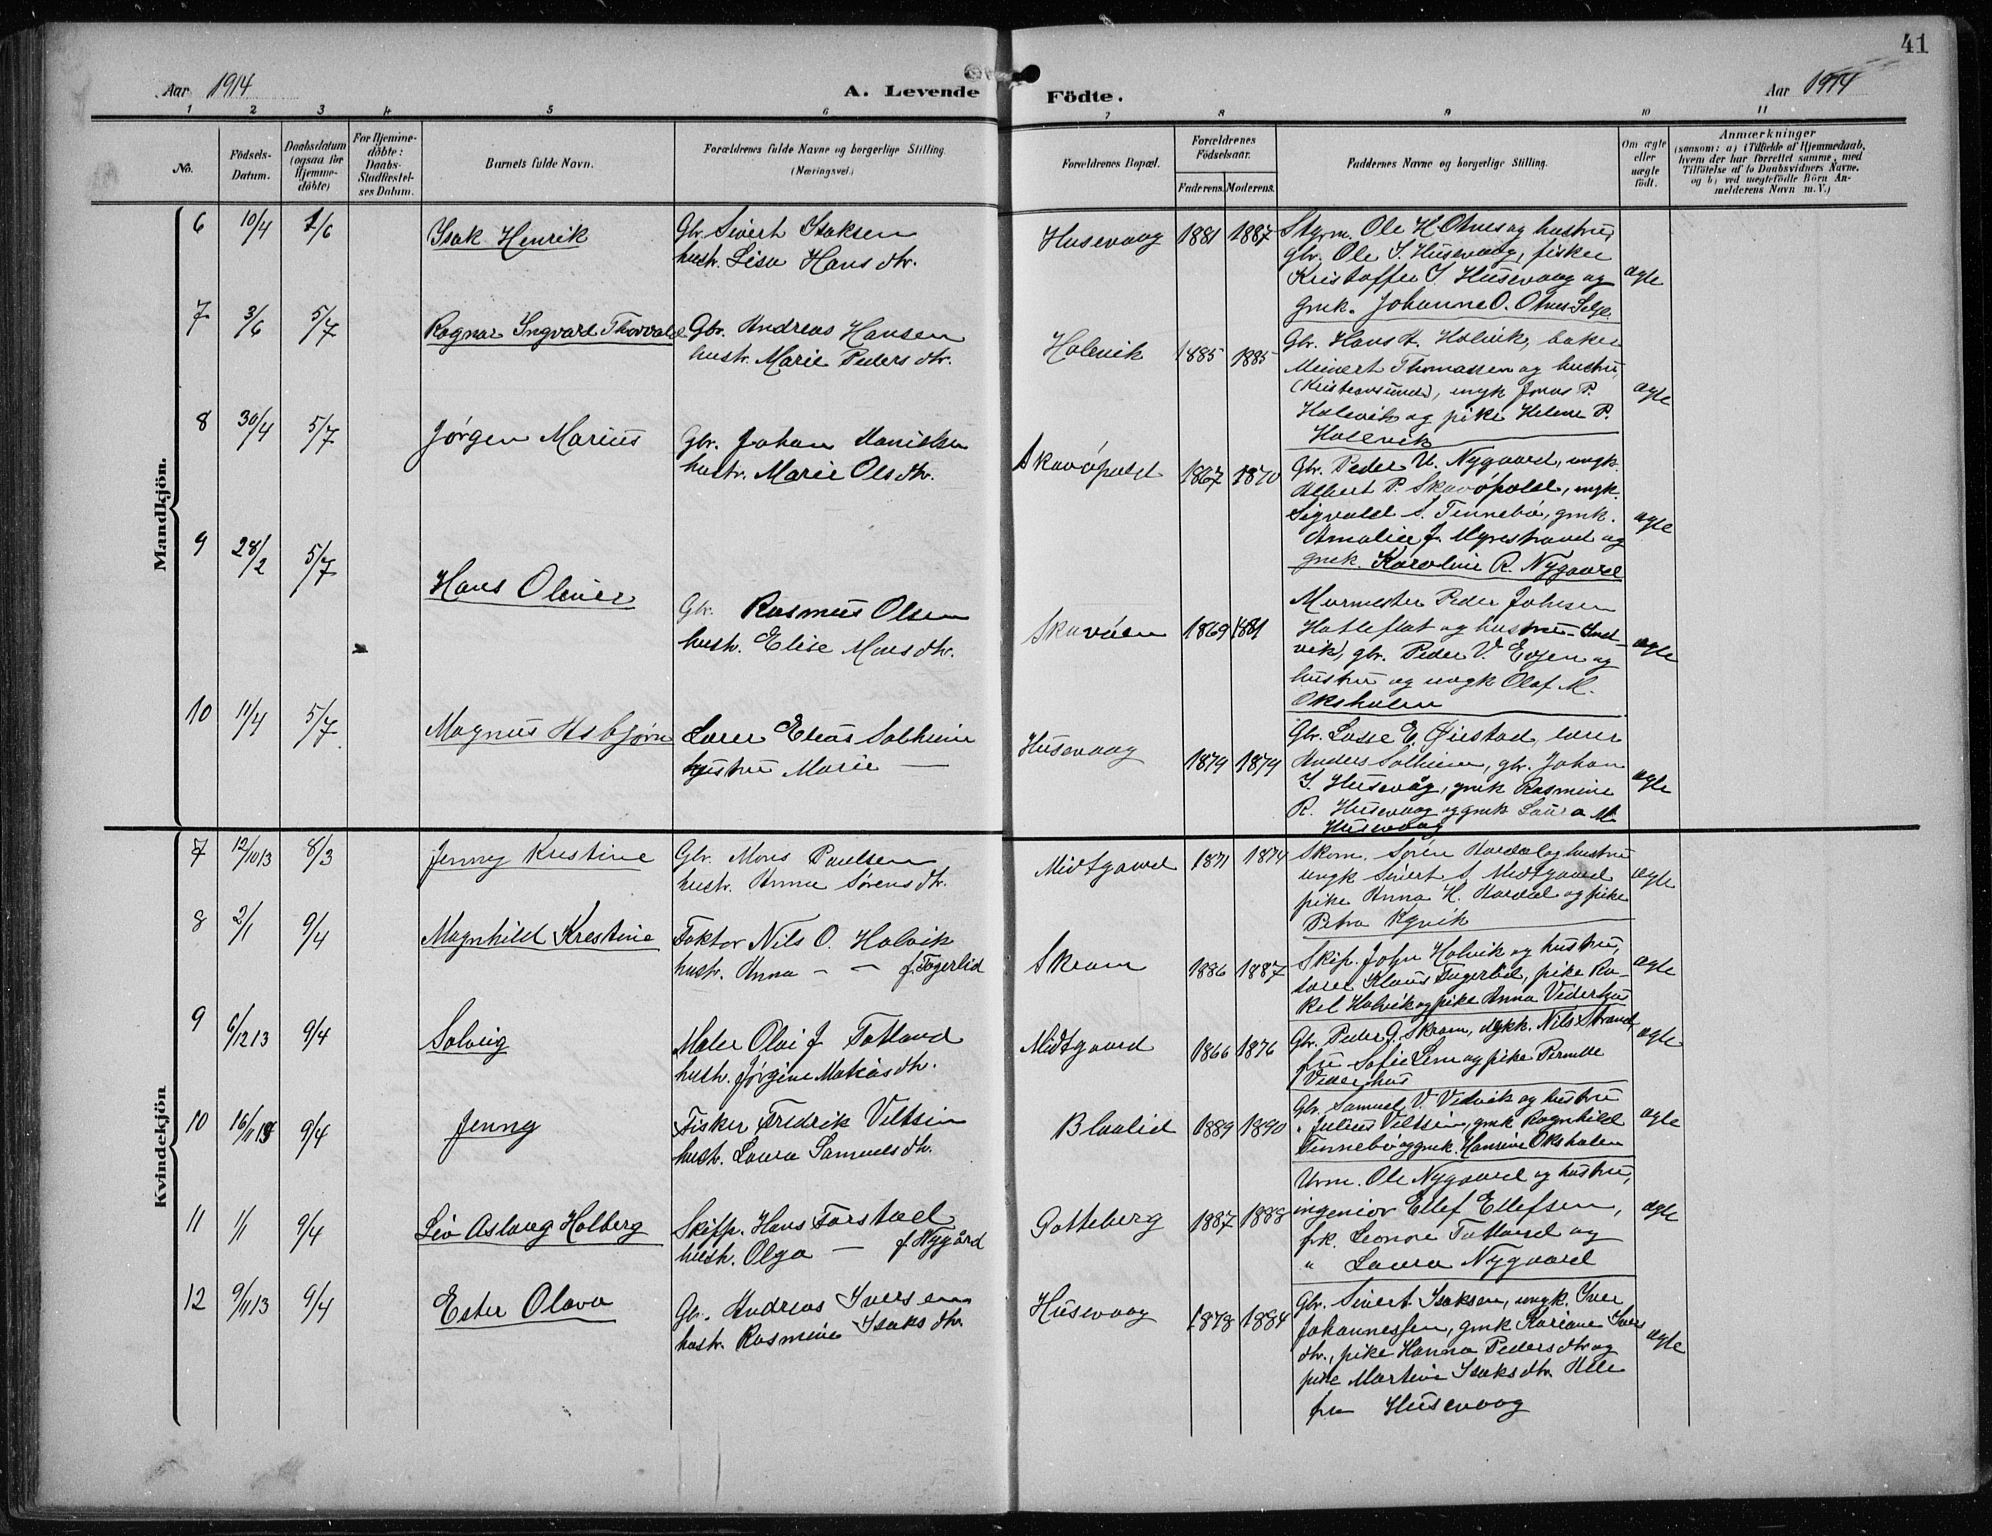 41
Aar 1914
A. Levende Födte.
Aar 1914
1 2 3 4 5 6 7 8 9 10 11
No.
Födsels-
Datum.
Daabsdatum
(ogsaa for
Hjemme-
döbte)
For Hjemme-
döbte:
Daabs-
Stadfæstel-
ses Datum.
Barnets fulde Navn.
Forældrenes fulde Navne og borgerlige Stilling.
(Næringsvei)
Forældrenes Bopæl.
Forældrenes
Födselsaar.
Faderens. Moderens.
Faddernes Navne og borgerlige Stilling.
Om ægte
eller
uægte
födt.
Anmærkninger
(saasom: a) i Tilfælde af Hjemmedaab,
hvem der har forrettet samme, med
Tilföielse af to Daabsvidners Navne.
og b) ved uægtefödte Börn An-
melderens Navn m. V.)
Mandkjön.
6 10/4 1/6 Isak Henrik
Gbr. Sivert Isaksen
hustr. Lisa Hansdtr.
Husevaag 1881 1887
Styrm. Ole H. Otnes og hustru,
gbr. Ole I. Husevaag, fisker
Kristoffer I. Husevaag og
gmk. Johanne O. Otnes Selje
ægte
7 3/6 5/7 Ragnar Ingvard Thorvald
Gbr. Andreas Hansen
hustr. Marie Pedersdtr.
Holevik 1885 1885
Gbr. Hans A. Holvik, baker
Meinert Thomassen og hustru,
(Kristiansund), ungk Jonas P.
Holevik og pike Helene P.
Holevik
ægte
8 30/4 5/7 Jørgen Marius
Gbr. Johan
hustr. Marie Olsdtr.
Skavøpold 1867 1870
Gbr. Peder U. Nygaard, ungk.
Albert P. Skavøpold, ungk.
Sigvald S. Tennebø, gmk.
Amalie J. Myrestrand og
gmk. Karoline R. Nygaard
ægte
9 28/2 5/7 Hans Oliver
Gbr. Rasmus Olsen
hustr. Elise Monsdtr.
Skavøen 1869 1881
Murmester Peder Johnsen
Hatleflot og hustru - Ind-
vik), gbr. Peder V. Evjen og
hustru og ungk Olaf M.
Oksholen
ægte
10 11/4 5/7 Magnus Asbjørn
Lærer Elias Solheim
hustru Marie —
Husevaag 1879 1879
Gbr. Lasse E. Øiestad, lærer
Anders Solheim, gbr. Johan
I. Husevåg, gmk Rasmine
R. Husevaag og gmk Laura M.
Husevaag
ægte
Kvindekjön
7 12/10 13 8/3 Jenny Kristine
Gbr. Mons Paulsen
hustr. Anna Sørensdtr.
Midtgaard 1871 1874
Skom. Søren Hardal og hustru
ungk Sivert S. Midtgaard
pike Anna H. Hardal og pike
Petra Kvik
ægte
8 2/1 9/4 Magnhild Krestine
Faktor Nils O. Holvik
hustr. Anna — — f. Fagerlid
Skram 1886 1887
Skip. John Holvik og hustru,
lærer Klaus Fagerlid, pike Ra-
kel Holvik og pike Anna Vederhus
ægte
9 6/12 13 9/4 Solveig
Maler Olai J. Totland
hustr. Jørgine Matiasdtr.
Midtgaard 1866 1876
Gbr. Peder G. Skram, dykk. Nils Strand,
fru Sofie Lem og pike Pernille
Vederhus
ægte
10 16/11 13 9/4 Jenny
Fisker Fredrik Viltsin
hustr. Laura Samuelsdtr.
Blaalid 1889 1890
Gbr. Samuel V. Vedvik og hustru
" Julius Viltsin, gmk Ragnhild
Tennebø og gmk. Hansine Oksholen
ægte
11 1/1 9/4 Liv Aslaug Holberg
Skipp. Hans Farstad
hustr. Olga — f. Nygård
Gotteberg 1887 1888
Urm. Ole Nygaard og hustru,
ingeniør Ellef Ellefsen,
frk. Leonore Totland og
" Laura Nygaard
ægte
12 9/11 13 9/4 Ester Olava
Gbr. Andreas Iversen
hustr. Rasmine Isaksdtr.
Husevaag 1878 1884
Gbr. Sivert Isaksen, ungk. Iver
Johannessen, gmk Kariane Ivers
dtr., pike Hanna Pedersdtr og
pike Martine Isaksdtr. Alle
fra Husevaag
ægte